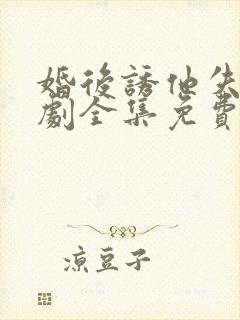 婚後誘他失
劇全集免費
涼豆子